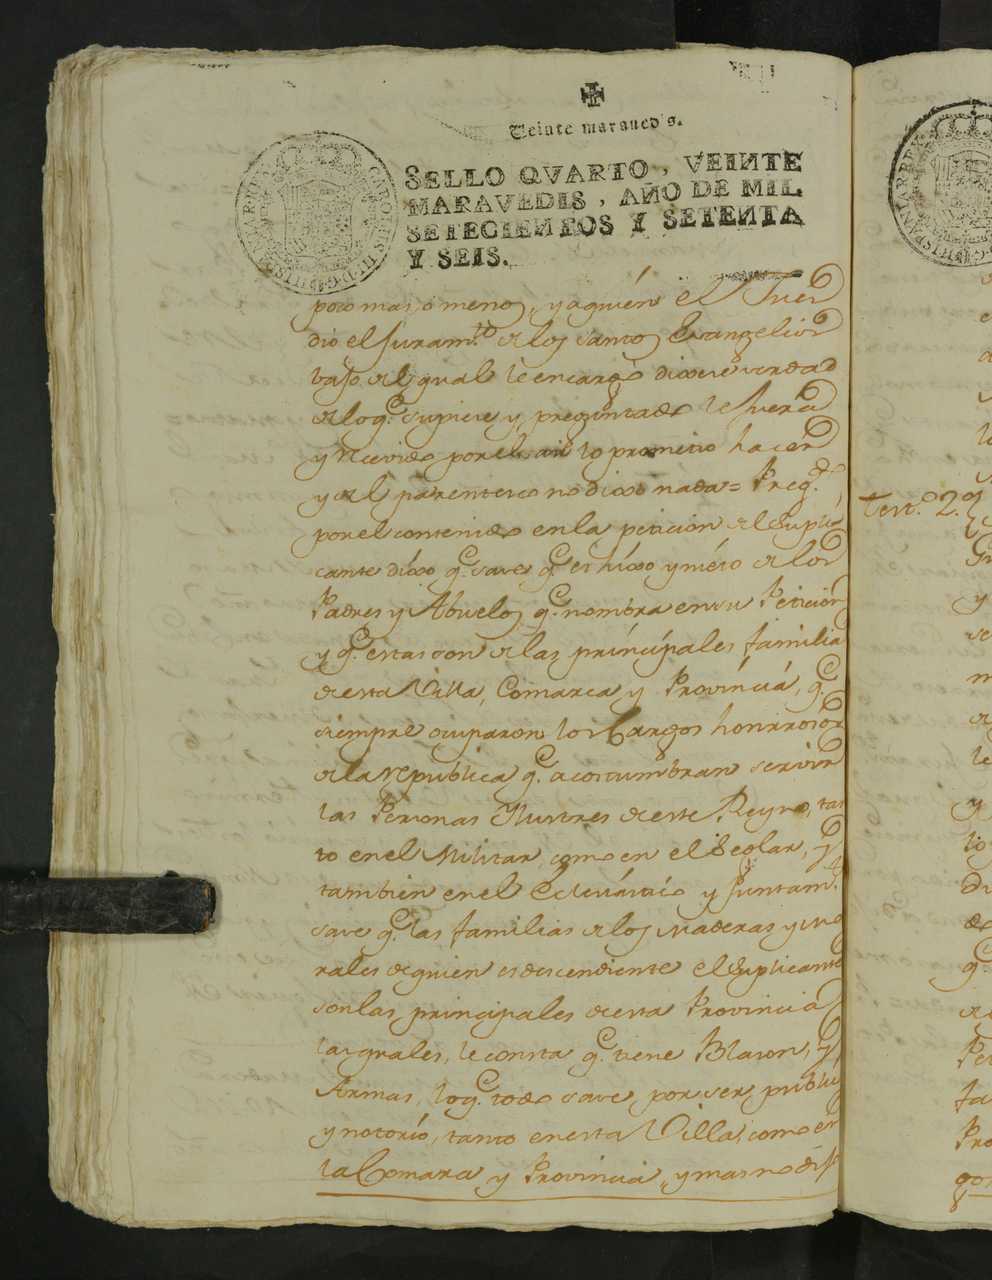 Veinte maraued's.
SELLO QVARTO, VEINTE
MARAVEDIS, AÑO DE MIL
SETECIENTOS Y SETENTA
Y SEIS.
poco mas, o menos, y aquien el Juez
dio el Juram.to de los santos Evangelios
vajo del qual le encargò dixese verdad
de loq.e supiere y preguntado le fuera
y recevido por el asi lo prometio hacer
y del parentesco no dixo nada= Preg.do
por el contenido en la peticion del Supli
cante dixo q.e save q.e es hixo y nieto de los
Padres y Abuelos q.e nombra en su Peticion
y q.e estas son de las principales familias
de esta Villa, Comarca y Provincia, q.e
siempre ocuparon los Cargos honrrosos
de la Republica q.e acostumbran servir
las Personas Ylustres de este Reyno, tan
to en el Militar, como en el Seglar, y
tambien en el Eclesiastico y Juntam.te
save q.e las familias de los Maderas y Mo
rales de quien es descendiente el Suplicante
son las principales de esta Provincia
las quales, le consta q.e tiene Blason, y
Armas, loq.e todo save por ser public
y notorio, tanto en esta Villa, como en
la Comarca y Provincia, y mas no dijo
Test.o 2.o